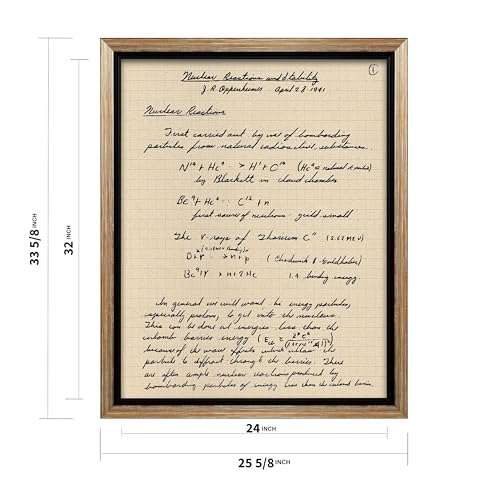 Nuclear Reactions and Stability
①
J. R. Oppenheimer April 28 1941
Nuclear Reactions
First carried out by use of bombarding
particles from natural radioactive substances.
N¹⁴ + He⁴ → H¹ + O¹⁴ (He⁴ = natural α rules)
by Blackett in cloud chamber
Be⁹ + He⁴ : C¹² + n
first source of neutrons - yield small
The γ-rays of Thorium C" (2.62 MEV)
D + γ → n + p (Chadwick & Goldhaber)
Be⁹ + γ → n + 2He 1.9 binding energy.
In general we will want hi energy particles,
especially protons, to get into the nucleus.
This can be done at energies less than the
coulomb barrier energy
because of the wave effects which allow the
particle to diffract through the barrier. There
are often ample nuclear reactions produced by
bombarding particles of energy less than the coulomb barrier.
33 5/8 INCH
32 INCH
24 INCH
25 5/8 INCH